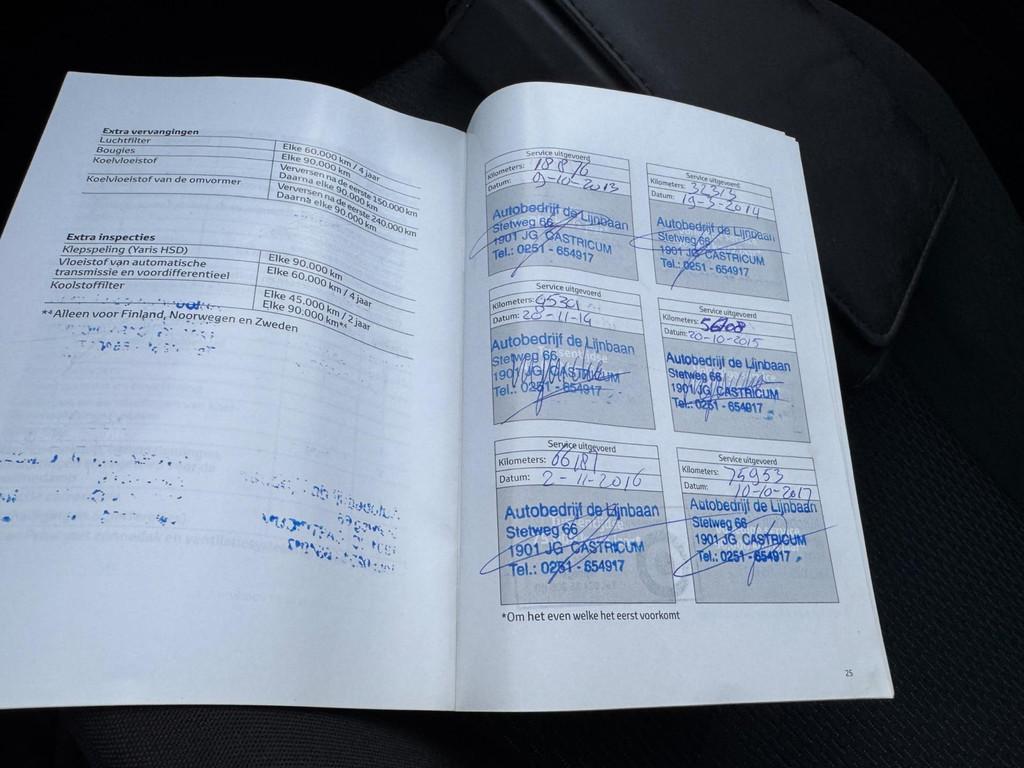 Extra vervangingen
Luchtfilter Elke 60.000 km / 4 jaar
Bougies Elke 90.000 km
Koelvloeistof Verversen na de eerste 150.000 km
Daarna elke 90.000 km
Koelvloeistof van de omvormer Verversen na de eerste 240.000 km
Daarna elke 90.000 km
Extra inspecties
Klepspeling (Yaris HSD) Elke 90.000 km
Vloeistof van automatische
transmissie en voordifferentieel Elke 60.000 km / 4 jaar
Koolstoffilter Elke 45.000 km / 2 jaar
Elke 90.000 km*⁴
*⁴Alleen voor Finland, Noorwegen en Zweden
Service uitgevoerd
Kilometers: 18876
Datum: 9-10-2013
Autobedrijf de Lijnbaan
Stetweg 66
1901 JG CASTRICUM
Tel.: 0251 - 654917
Service uitgevoerd
Kilometers: 32313
Datum: 19-3-2014
Autobedrijf de Lijnbaan
Stetweg 66
1901 JG CASTRICUM
Tel.: 0251 - 654917
Service uitgevoerd
Kilometers: 45301
Datum: 20-11-14
Autobedrijf de Lijnbaan
Stetweg 66
1901 JG CASTRICUM
Tel.: 0251 - 654917
Service uitgevoerd
Kilometers: 56108
Datum: 20-10-2015
Autobedrijf de Lijnbaan
Stetweg 66
1901 JG CASTRICUM
Tel.: 0251 - 654917
Service uitgevoerd
Kilometers: 66181
Datum: 2-11-2016
Autobedrijf de Lijnbaan
Stetweg 66
1901 JG CASTRICUM
Tel.: 0251 - 654917
Service uitgevoerd
Kilometers: 75953
Datum: 10-10-2017
Autobedrijf de Lijnbaan
Stetweg 66
1901 JG CASTRICUM
Tel.: 0251 - 654917
*Om het even welke het eerst voorkomt
25